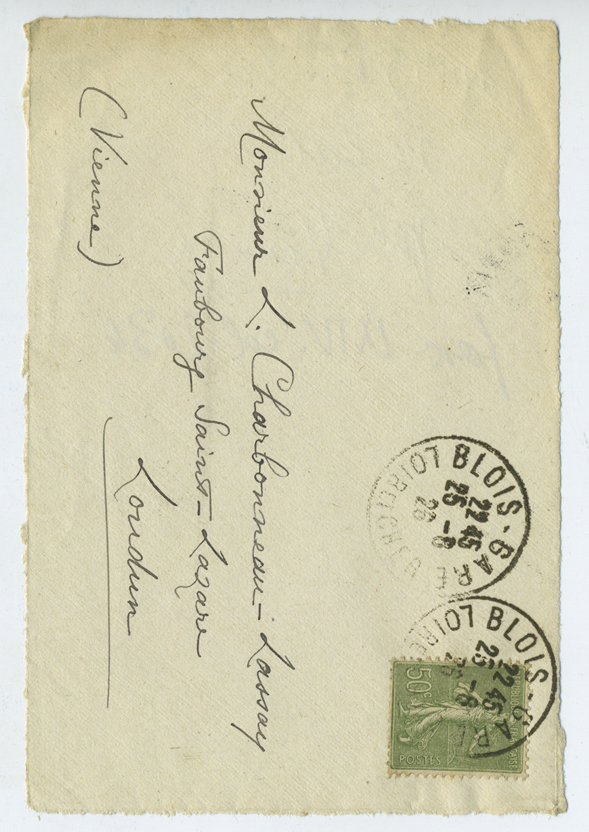 Monsieur L. Charbonneau-Lassay
Faubourg Saint-Lazare
Loudun
(Vienne)
BLOIS-GARE
22 45
25 -8
26
LOIR
BLOIS-GARE
22 45
25 -8
26
LOIRE
50c
POSTES